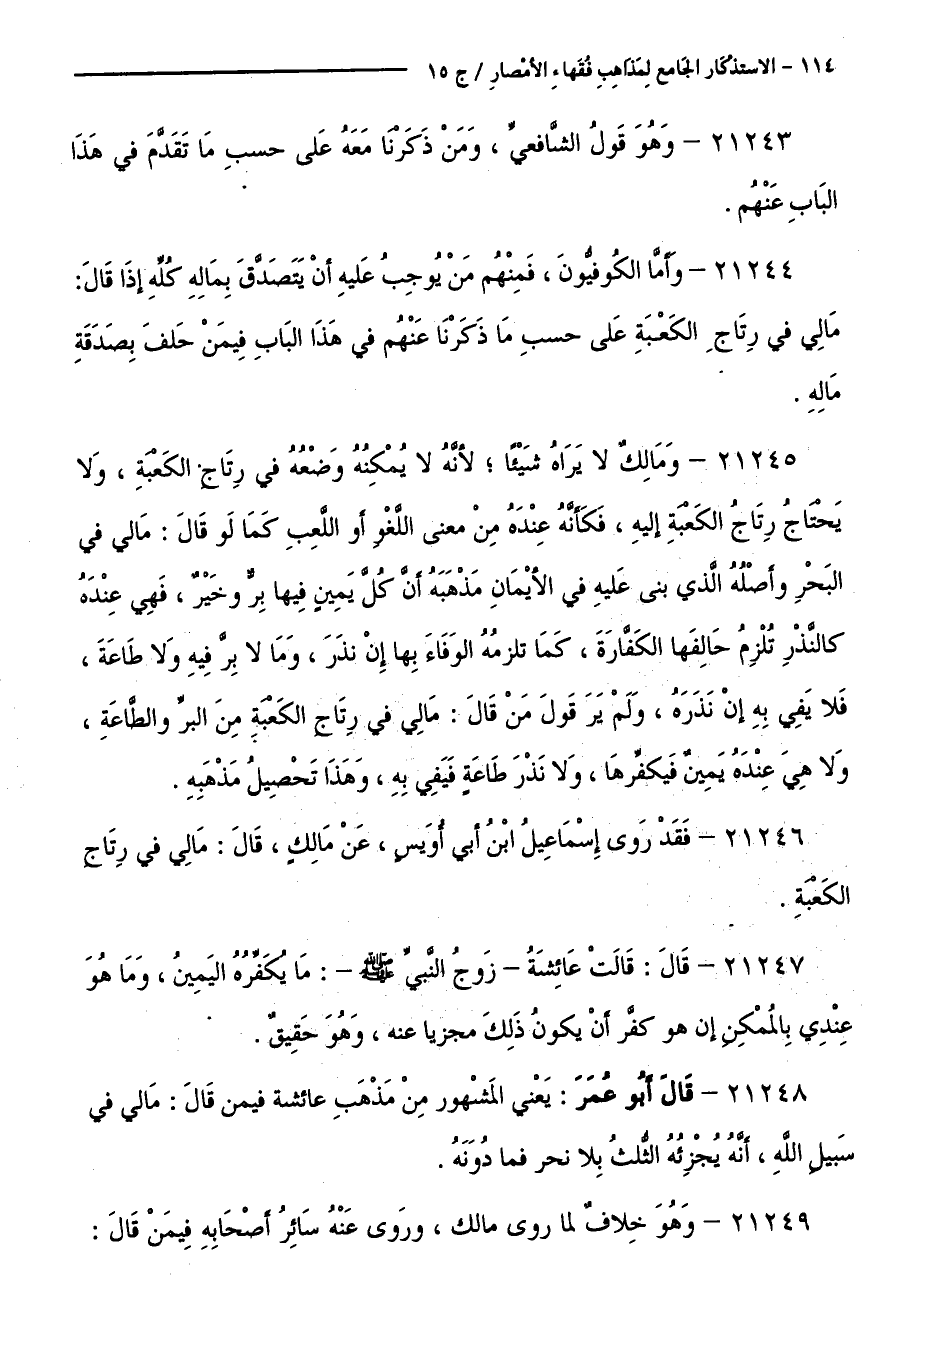 ١١٤ - الاستذكار الجامع لِمَذَاهِبِ فُقَهاءِ الأمْصارِ / ج ١٥
٢١٢٤٣ - وَهُوَ قَولُ الشَّافعيِّ ، وَمَنْ ذَكَرْنَا مَعَهُ عَلى حسبِ مَا تَقَدَّمَ في هَذَا
البَابِ عَنْهُم .
٢١٢٤٤ - وَأَمَّا الكُوفيُّونَ ، فَمِنْهُم مَنْ يُوجِبُ عَليهِ أنْ يَتَصَدَّقَ بِمَالِهِ كُلِّهِ إذَا قَالَ:
مَالِي في رِتَاجِ الكَعْبَةِ عَلى حسبِ مَا ذَكَرْنَا عَنْهُم في هَذَا البَابِ فِيمَنْ حَلفَ بِصَدَقَةِ
مَالِهِ .
٢١٢٤٥ - وَمَالِكٌ لا يَرَاهُ شَيْئًا ؛ لأنَّهُ لا يُمْكِنُهُ وَضْعُهُ في رِتَاجِ الكَعْبَةِ ، وَلا
يَحْتَاجُ رِتَاجُ الكَعْبَةِ إليهِ ، فَكَأنَّهُ عِنْدَهُ مِنْ معنى اللَّغْوِ أو اللَّعِبِ كَمَا لَو قَالَ : مَالي في
البَحْرِ وأصْلُهُ الَّذي بنى عَليهِ في الأيْمَانِ مَذْهَبَهُ أنَّ كُلَّ يَمِينٍ فِيها بِرٌّ وخَيْرٌ ، فَهِي عِنْدَهُ
كالنَّذْرِ تُلْزِمُ حَالِفَها الكَفَّارَةَ ، كَمَا تلزمُهُ الوَفَاءَ بِها إنْ نذَرَ ، وَمَا لا بِرَّ فِيهِ وَلا طَاعَةَ ،
فَلا يَفِي بِهِ إنْ نَذَرَهُ ، وَلَمْ يَرَ قَولَ مَنْ قَالَ : مَالِي في رِتَاجِ الكَعْبَةِ مِنَ البرِّ والطَّاعَةِ ،
وَلا هِيَ عِنْدَهُ يَمِينٌ فَيكفِّرهَا ، وَلا نَذْرَ طَاعَةٍ فَيَفِي بِهِ ، وَهَذَا تَحْصِيلُ مَذْهَبِهِ .
٢١٢٤٦ - فَقَدْ رَوى إِسْمَاعِيلُ ابْنُ أبي أُوَيسٍ ، عَنْ مَالِكٍ ، قَالَ : مَالِي في رِتَاجِ
الكَعْبَةِ .
٢١٢٤٧ - قَالَ : قَالَتْ عَائِشَةُ - زَوجُ النَّبيِّ ﷺ - : مَا يُكَفِّرُهُ اليَمِينُ ، وَمَا هُوَ
عِنْدِي بِالمُمْكِنِ إن هو كفَّر أنْ يكونُ ذَلِكَ مجزيا عنه ، وَهُوَ حَقِيقٌ .
٢١٢٤٨ - قَالَ أَبُو عُمَرَ : يَعْني المَشْهور مِنْ مَذْهَبِ عائشة فيمن قَالَ : مَالي في
سَبيلِ اللَّهِ ، أنَّهُ يُجْزِئُهُ الثُّلثُ بِلا نحر فما دُونَهُ .
٢١٢٤٩ - وَهُوَ خِلافٌ لما روى مالك ، ورَوى عَنْهُ سَائِرُ أصْحَابِهِ فِيمَنْ قَالَ :